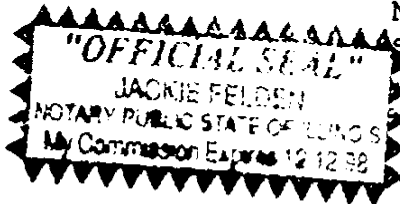 "OFFICIAL SEAL"
JACKIE FELDEN
NOTARY PUBLIC STATE OF ILLINOIS
My Commission Expires 12 12 98